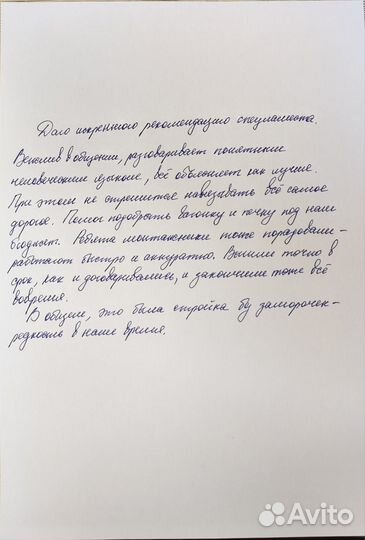 Даю искреннюю рекомендацию специалиста.
Вежлив в общении, разговаривает понятным
человеческим языком, всё объясняет как лучше.
При этом не стремится навязывать всё самое
дорогое. Помог подобрать вагонку и печку под наш
бюджет. Ребята монтажники тоже порадовали –
работают быстро и аккуратно. Вышли точно в
срок, как и договаривались, и закончили тоже всё
вовремя.
В общем, это была стройка без заморочек –
редкость в наше время.
Avito